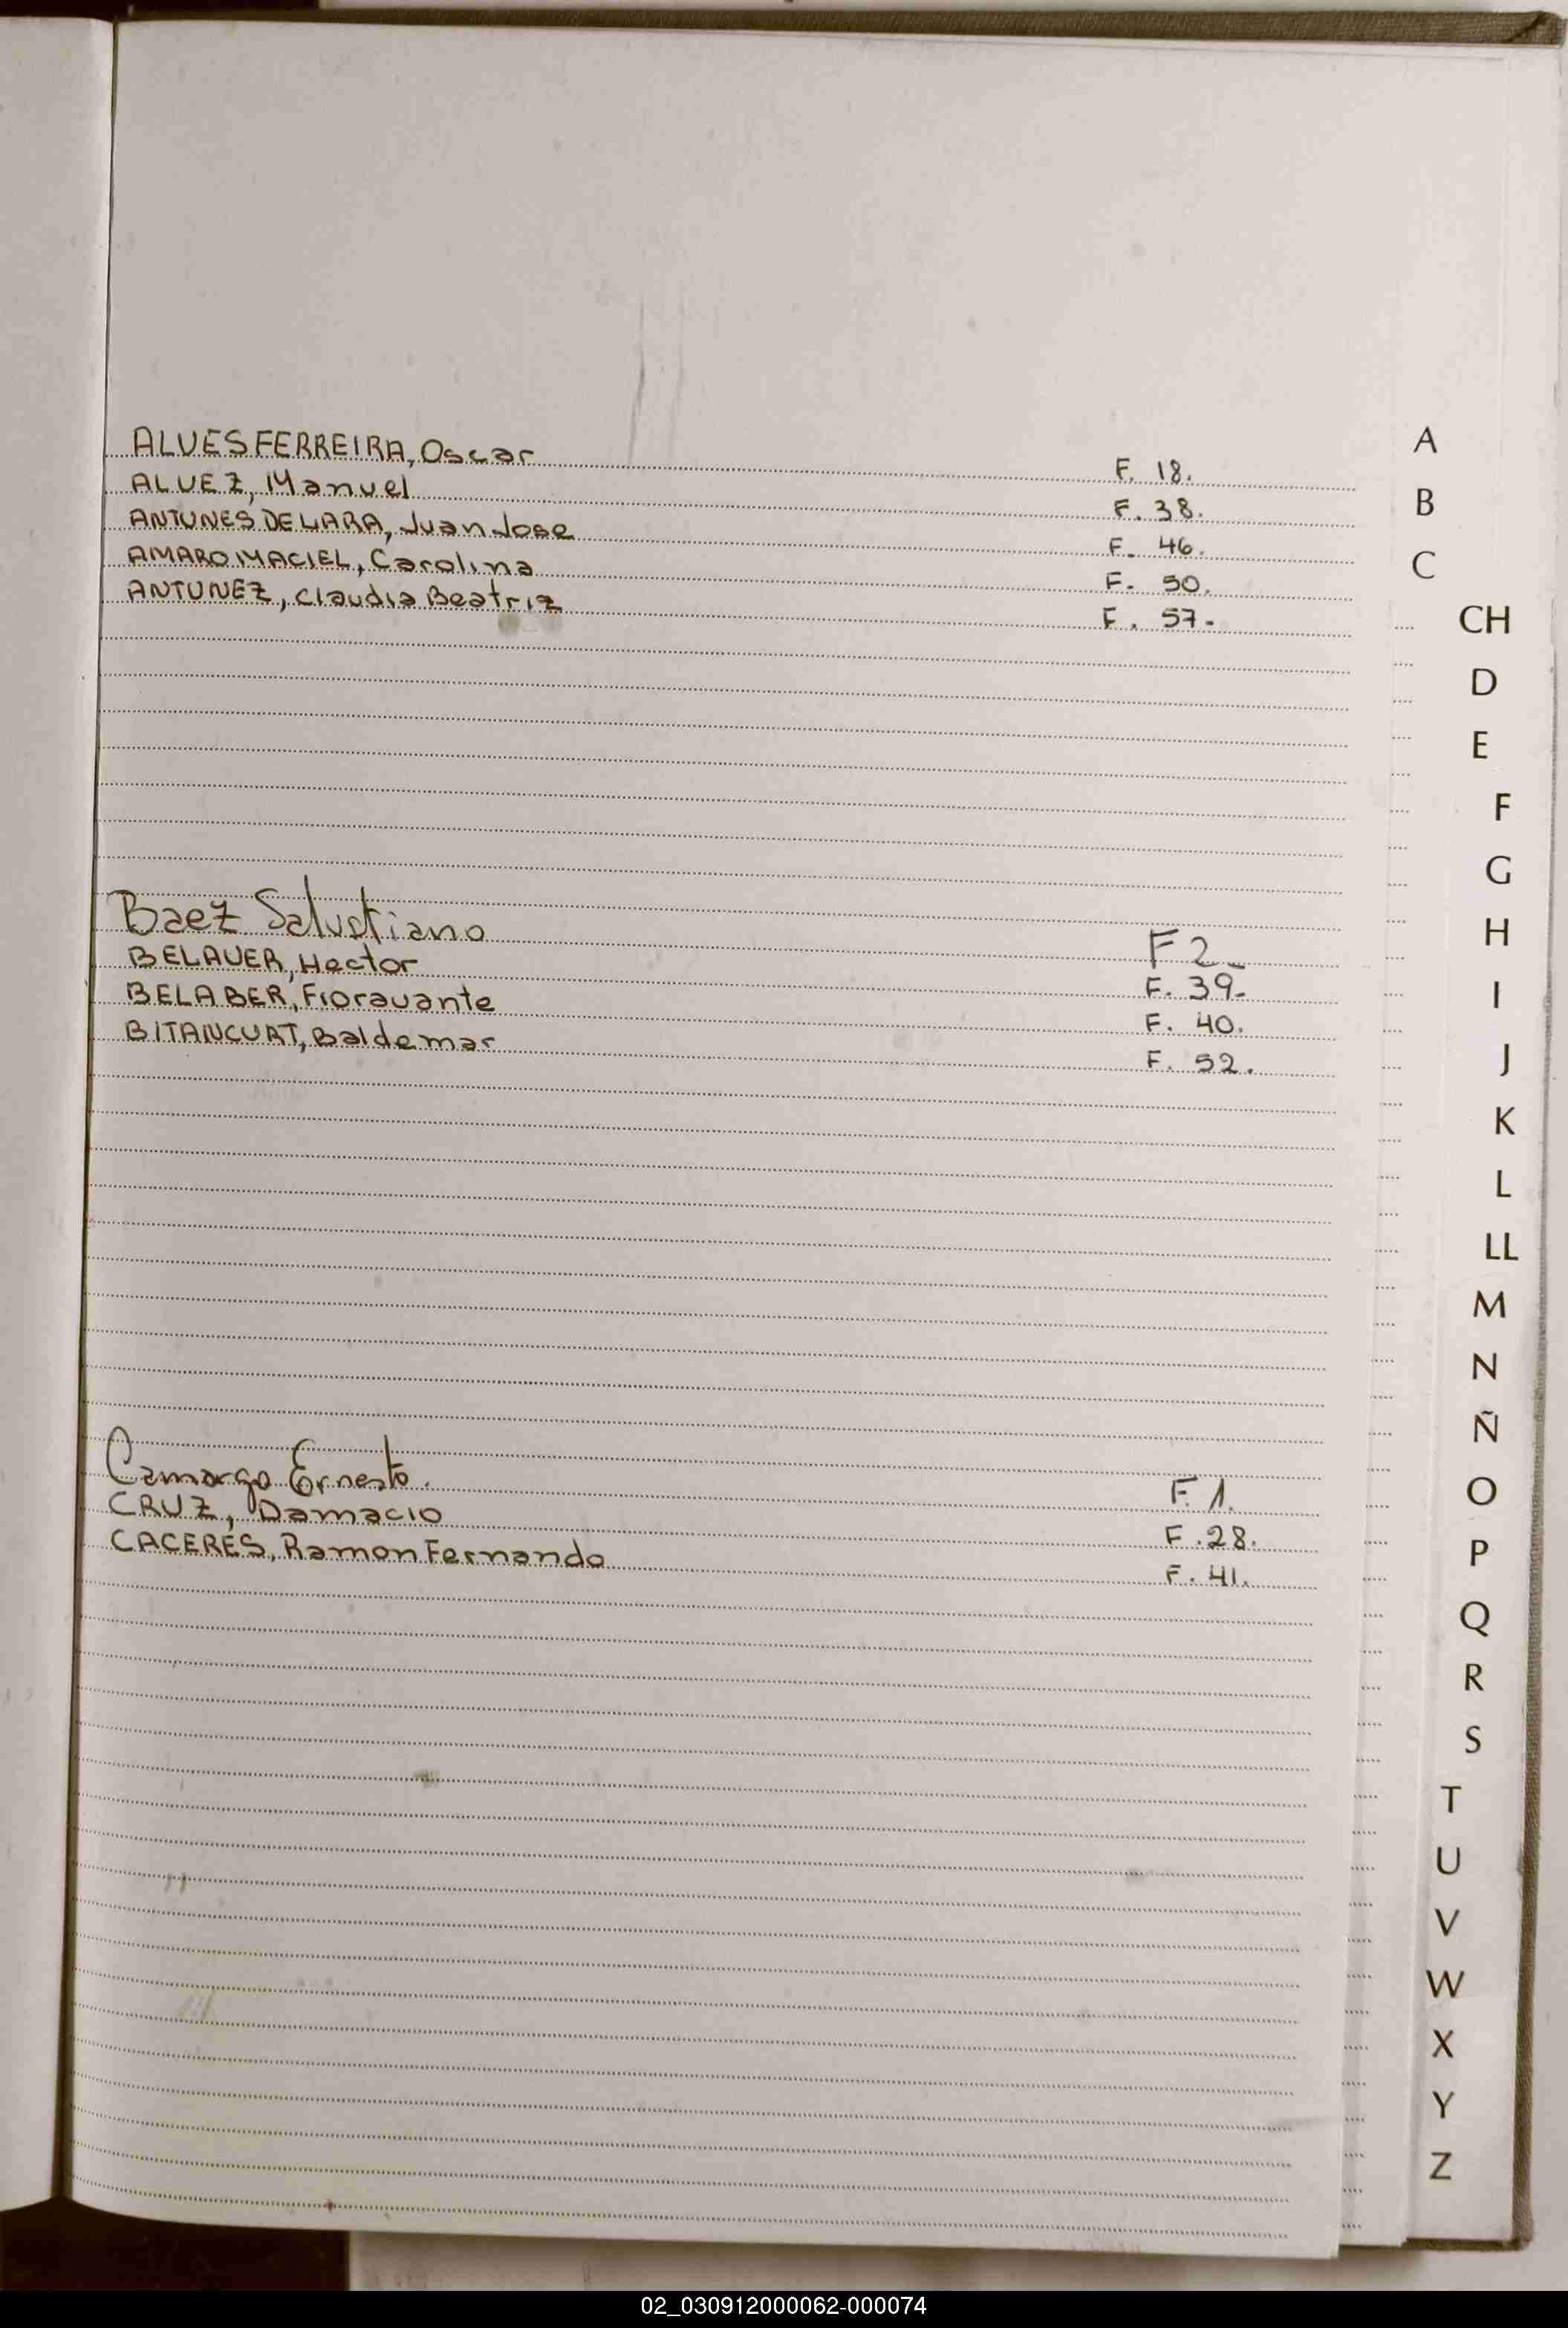 ALVES FERREIRA, Oscar F. 18.
ALVEZ, Manuel F. 38.
ANTUNES DE LARA, Juan Jose F. 46.
AMARO MACIEL, Carolina F. 50.
ANTUNEZ, Claudia Beatriz F. 57.
Baez Salustiano F 2
BELAVER, Hector F. 39
BELABER, Fioravante F. 40.
BITANCURT, Baldemar F. 52.
Camargo Ernesto. F. 1.
CRUZ, Damacio F. 28.
CACERES, Ramon Fernando F. 41.
A
B
C
CH
D
E
F
G
H
I
J
K
L
LL
M
N
Ñ
O
P
Q
R
S
T
U
V
W
X
Y
Z
02_030912000062-000074